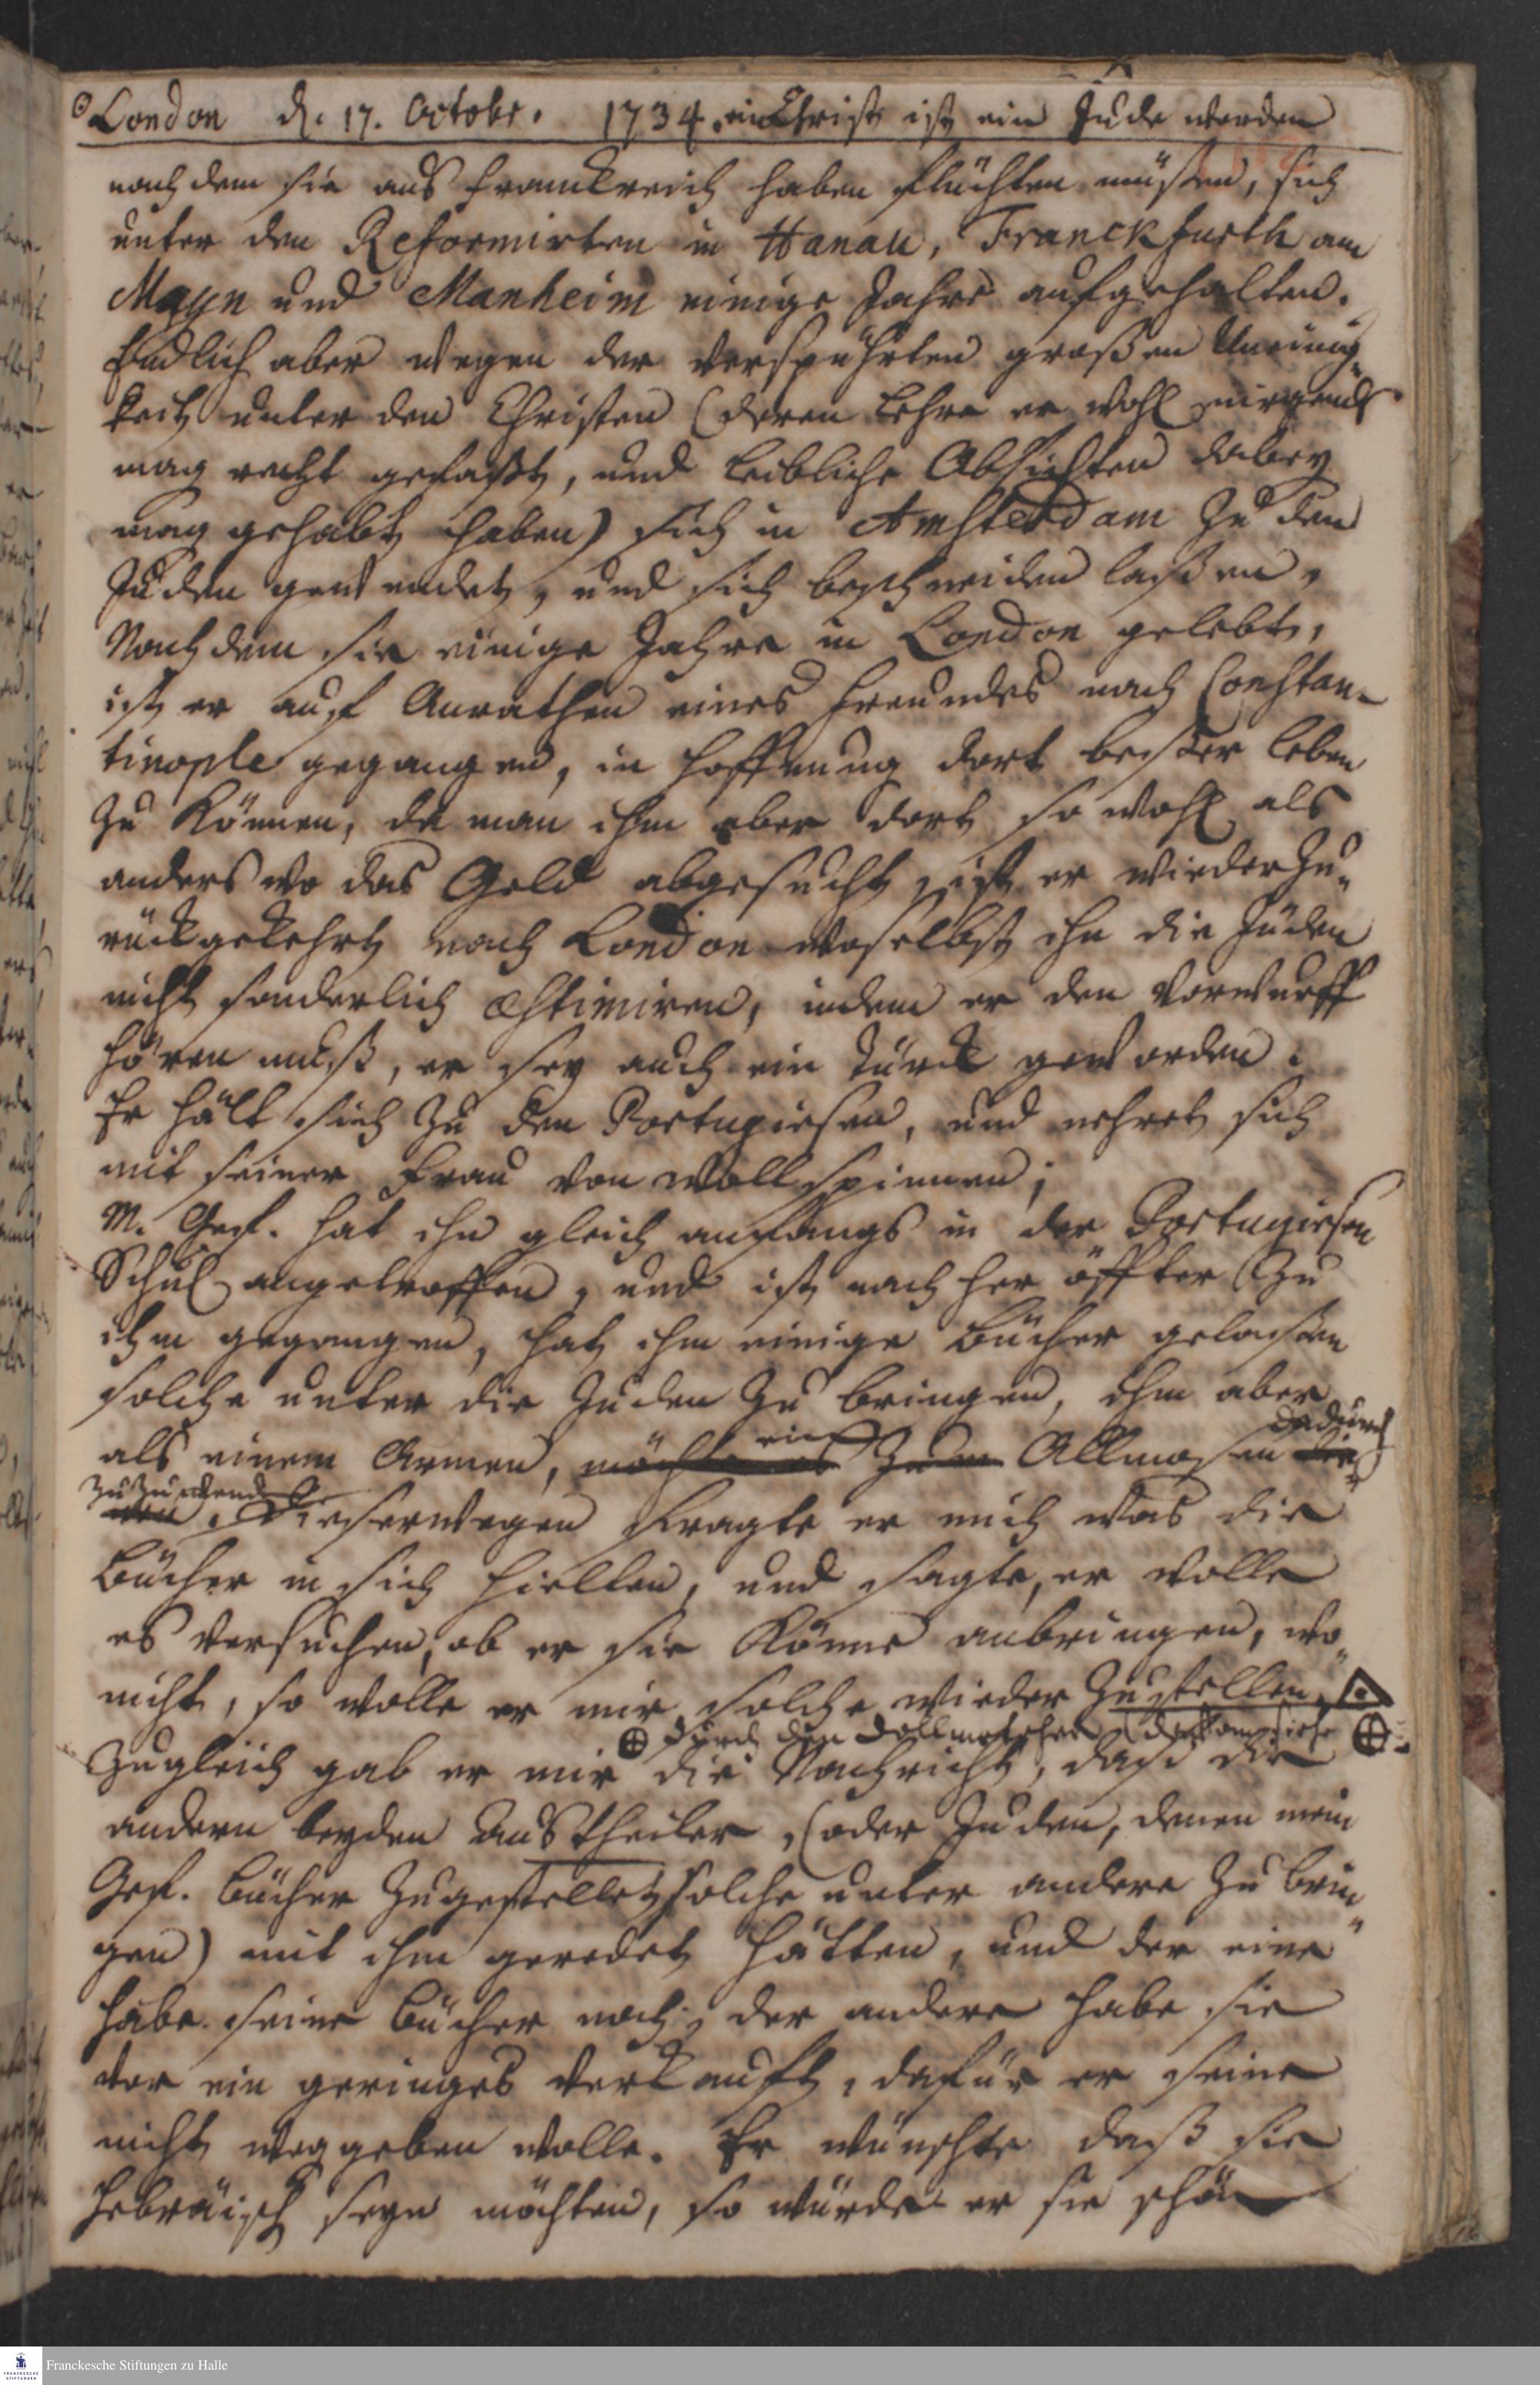 London d. 17. Octobr. 1734. ein Christ ist ein Jude worden
nach dem sie aus Franckreich haben flüchten müßen, sich
unter den Reformirten in Hanau, Franckfurth am
Mayn und Manheim einige Jahre aufgehalten.
Endlich aber wegen der verspührten großen Uneinig-
keit unter den Christen (deren Lehre er wohl nirgends
mag recht gefaßt, und leibliche Absichten dabey
mag gehabt haben) sich in Amsterdam zu den
Juden gewendet, und sich beschneiden laßen,
Nachdem sie einige Jahre in London gelebt,
ist er auf Anrathen eines Freundes nach Constan-
tinople gegangen, in Hoffnung dort beßer leben
zu können, da man ihm aber dort so wohl als
anders wo das Geld abgesucht, ist er wieder zu-
rückgekehrt nach London woselbst ihn die Juden
nicht sonderlich æstimiren, indem er den Vorwurff
hören muß, er sey auch ein Türck geworden.
Er hält sich zu den Portugiesen, und nehret sich
mit seiner Frau von Wollspinnen;
M. Gef. hat ihn gleich anfangs in der Portugiesen
Schul angetroffen, und ist nach her öffter zu
ihm gegangen, hat ihm einige Bücher gelaßen
solche unter die Juden zu bringen, ihm aber
dadurch
als einem Armen, möchte es ein zum Allmosen
zuzuwenden
Dieserwegen fragte er mich was die
Bücher in sich hielten, und sagte, er wolle
es versuchen, ob er sie könne anbringen, wo
nicht, so wolle er mir solche wieder zustellen,
⊕ durch den Dollmetscher ⊕
Zugleich gab er mir die Nachricht, daß die
andern beyden Austheiler, (oder Juden, denen mein
Gef. Bücher zugestellet solche unter andere zu brin-
gen) mit ihm geredet hätten, und der eine
habe seine Bücher noch, der andere habe sie
vor ein geringes verkaufft, dafür er seine
nicht weggeben wolle. Er wünschte daß sie
Hebräisch seyn möchten, so würde er sie schon
Franckesche Stiftungen zu Halle